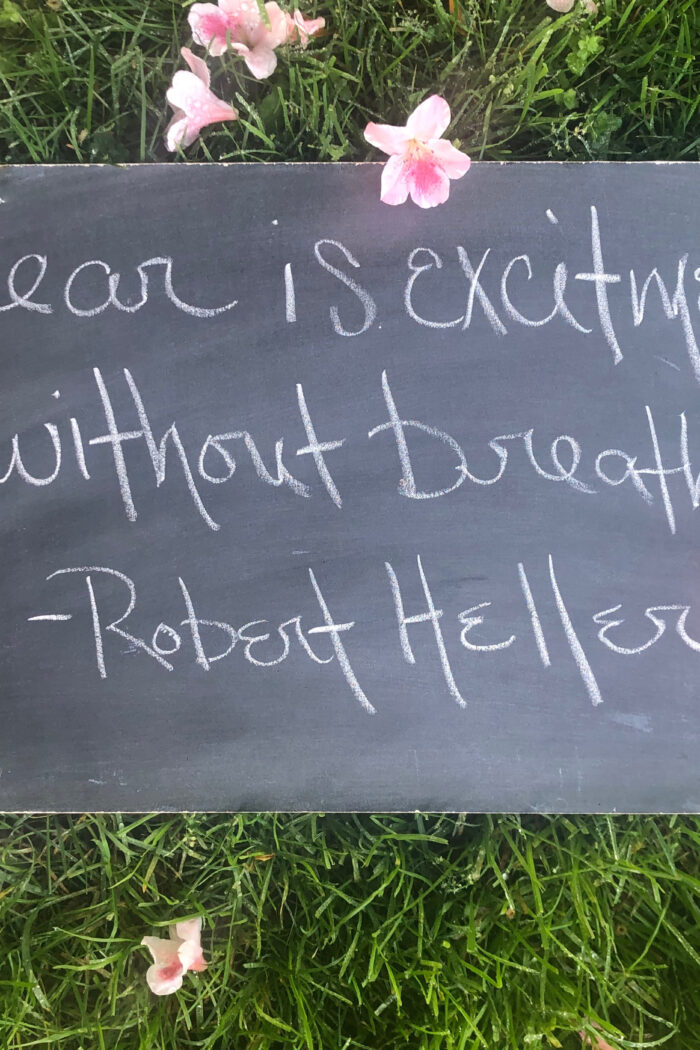 ear is exciting
without breath
-Robert Heller